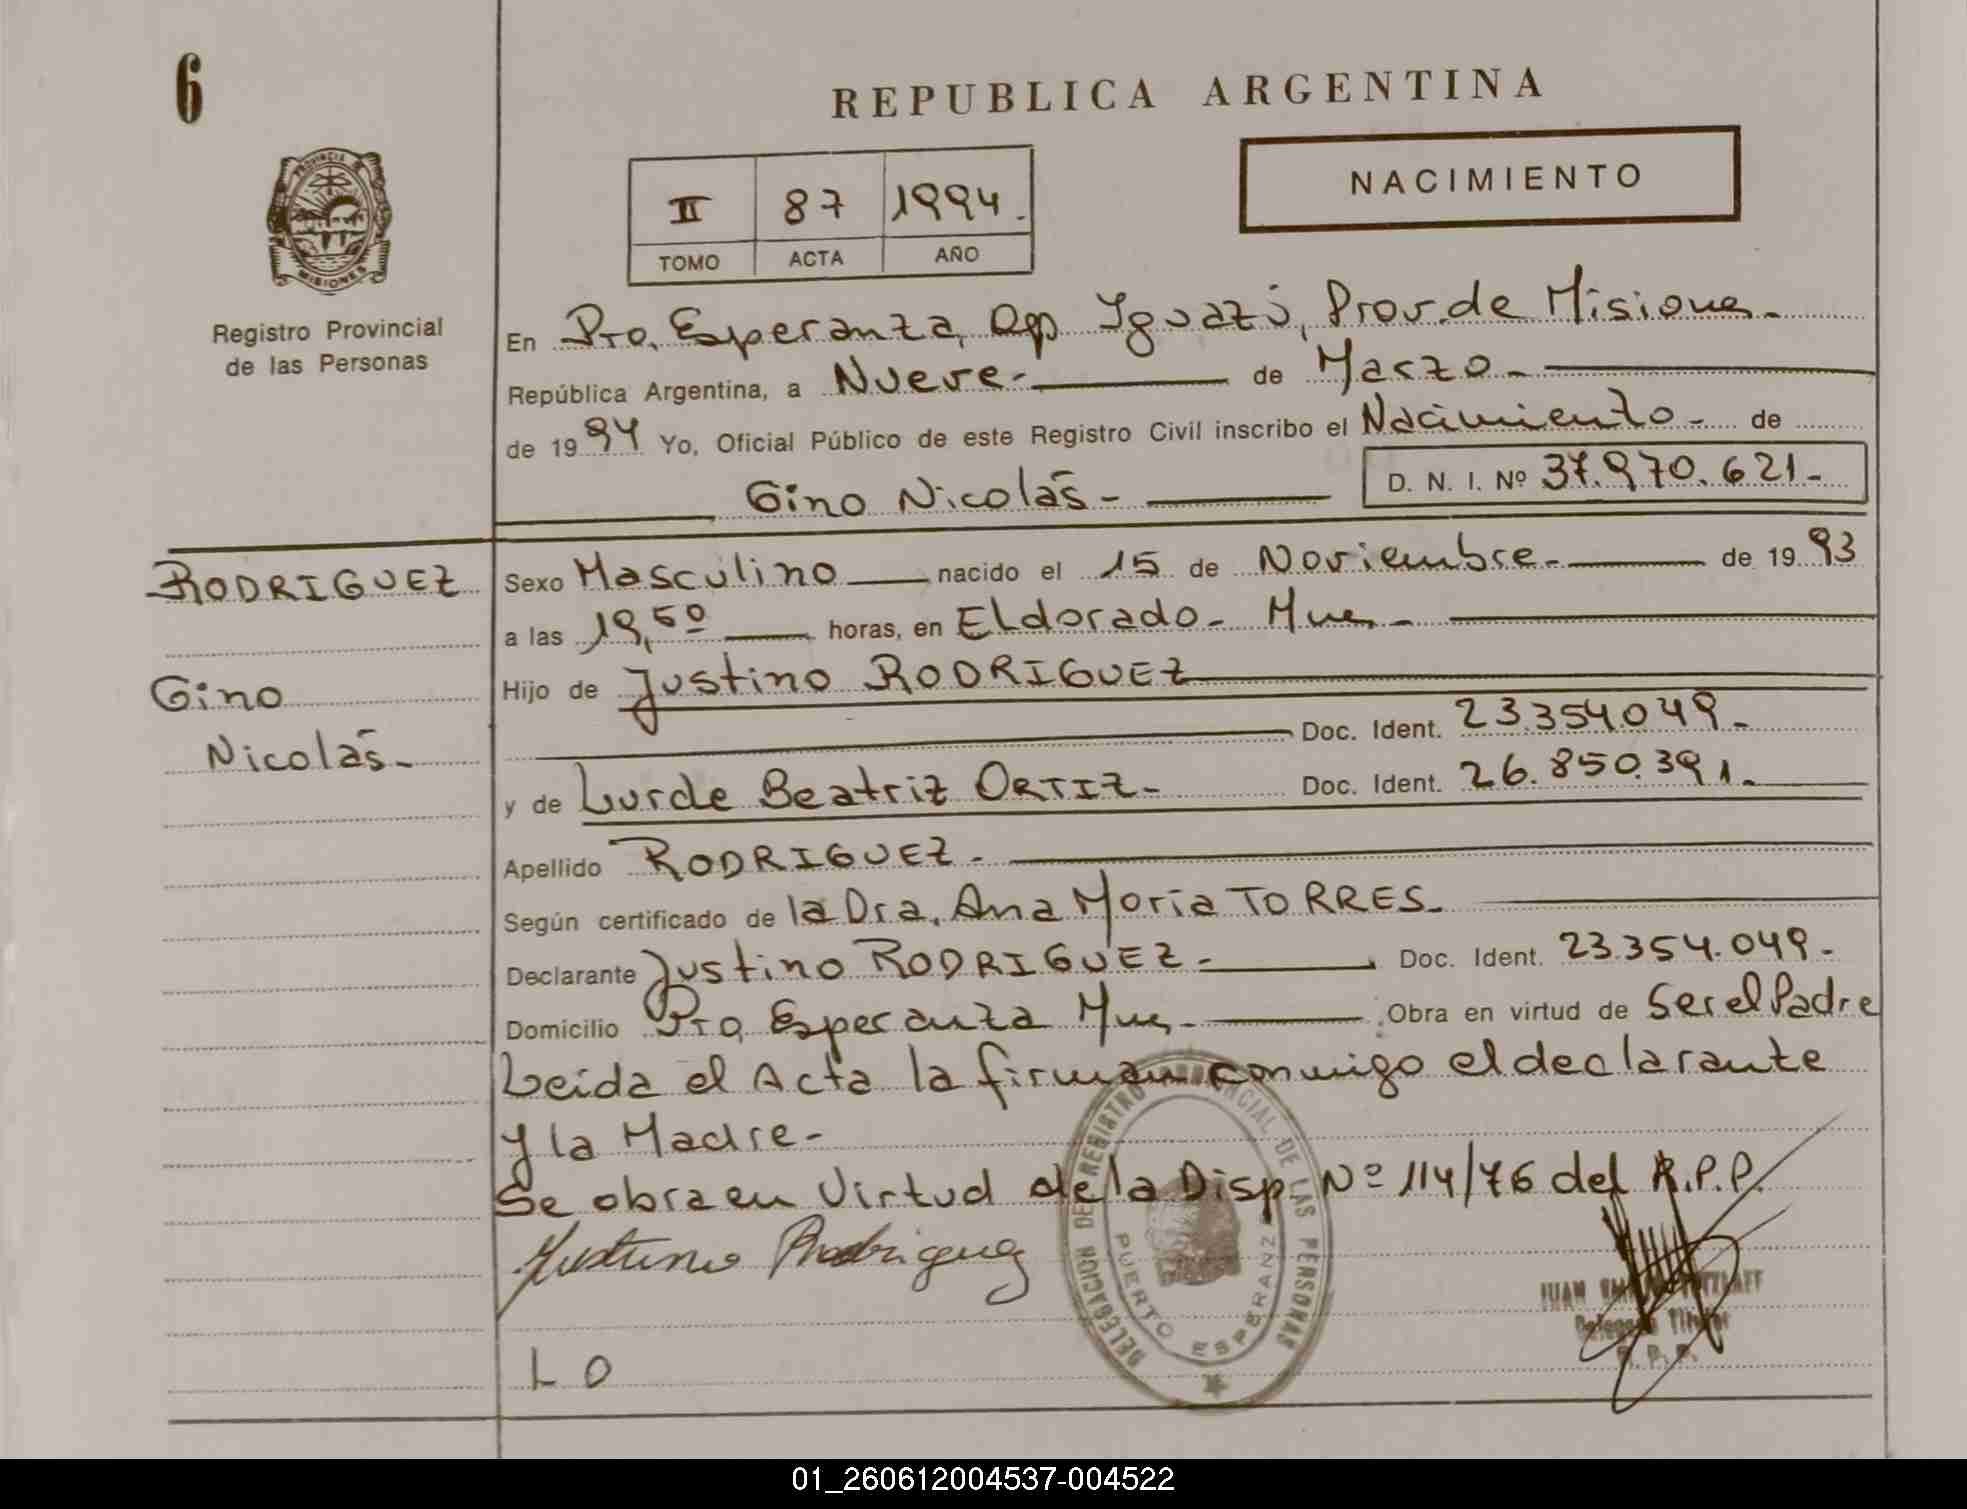 6
REPUBLICA ARGENTINA
NACIMIENTO
II 87 1994.
TOMO ACTA AÑO
PROVINCIA DE MISIONES
Registro Provincial
de las Personas
En Pto. Esperanza, Dep. Iguazú, Prov. de Misiones.
República Argentina, a Nueve- de Marzo-
de 1994 Yo, Oficial Público de este Registro Civil inscribo el Nacimiento- de
Gino Nicolás- D. N. I. Nº 37.970.621-
RODRIGUEZ
Gino
Nicolás-
Sexo Masculino nacido el 15 de Noviembre- de 1993
a las 19,50 horas, en Eldorado- Mnes-
Hijo de Justino RODRIGUEZ
Doc. Ident. 23.354.049-
y de Lurde Beatriz ORTIZ- Doc. Ident. 26.850.391.
Apellido RODRIGUEZ-
Según certificado de la Dra. Ana Moria TORRES-
Declarante Justino RODRIGUEZ- Doc. Ident. 23.354.049-
Domicilio Pto. Esperanza Mnes- Obra en virtud de Ser el Padre
Leida el Acta la firman conmigo el declarante
y la Madre-
Se obra en Virtud de la Disp. Nº 114/76 del R.P.P.
Justino Rodriguez
DELEGACION DEL REGISTRO PROVINCIAL DE LAS PERSONAS
PUERTO ESPERANZA
JUAN
Delegado Titular
R. P. P.
L O
01_260612004537-004522